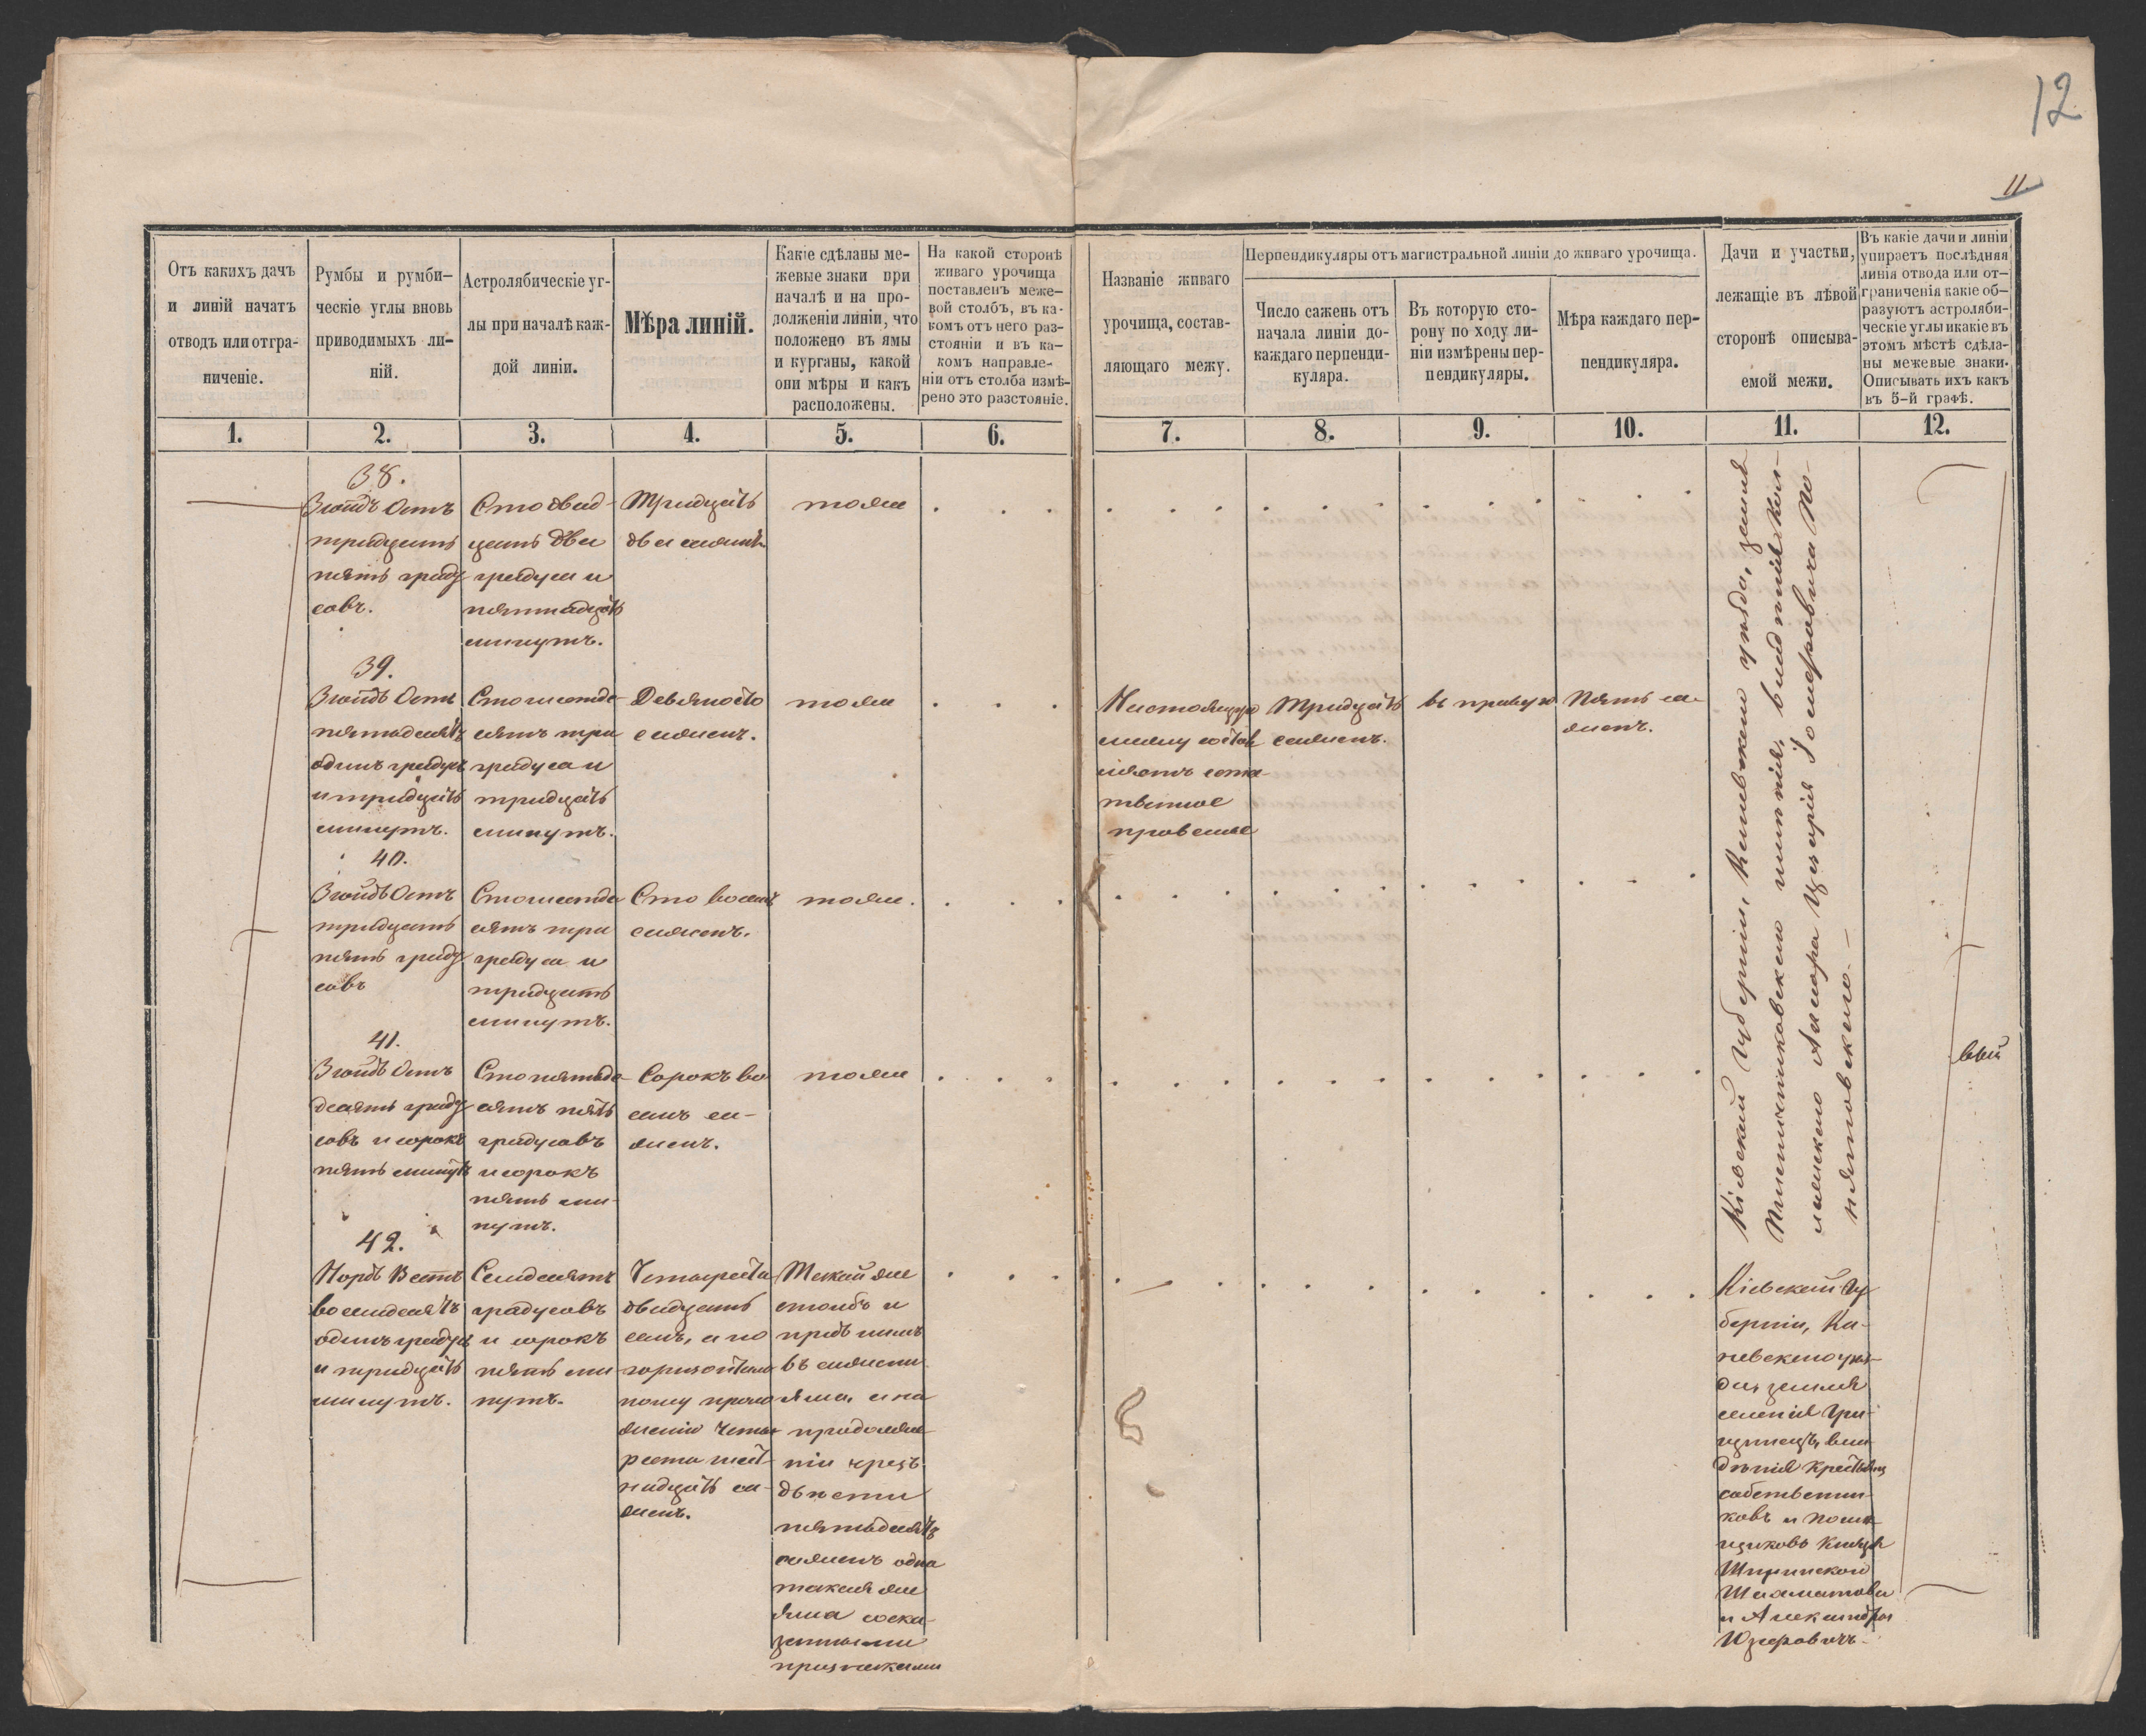 12
11
Отъ какихъ дачъ
и линій начатъ
отводъ или отгра-
ниченіе.
Румбы и румби-
ческіе углы вновь
приводимыхъ ли-
ній.
Астролябическіе уг-
лы при началѣ каж-
дой линіи.
Мѣра линій.
Какіе сдѣланы ме-
жевые знаки при
началѣ и на про-
долженіи линіи, что
положено въ ямы
и курганы, какой
они мѣры и какъ
расположены.
На какой сторонѣ
живаго урочища
поставленъ меже-
вой столбъ, въ ка-
комъ отъ него раз-
стояніи и въ ка-
комъ направле-
ніи отъ столба измѣ-
рено это разстояніе.
Названіе живаго
урочища, состав-
ляющаго межу.
Перпендикуляры отъ магистральной линіи до живаго урочища.
Число сажень отъ
начала линіи до-
каждаго перпенди-
куляра.
Въ которую сто-
рону по ходу ли-
ніи измѣрены пер-
пендикуляры.
Мѣра каждаго пер-
пендикуляра.
Дачи и участки,
лежащіе въ лѣвой
сторонѣ описыва-
емой межи.
Въ какіе дачи и линіи
упираетъ послѣдняя
линія отвода или от-
граниченія какіе об-
разуютъ астроляби-
ческіе углы и какіе въ
этомъ мѣстѣ сдѣла-
ны межевые знаки.
Описывать ихъ какъ
въ 5-й графѣ.
1. 2. 3. 4. 5. 6. 7. 8. 9. 10. 11. 12.
38.
Зюйдъ Остъ
тридцать
пять граду
совъ.
Сто двад-
цать два
градуса и
пятнадцать
минутъ.
Тридцать
двѣ сажни
тоже
39.
Зюйдъ Остъ
пятьдесятъ
одинъ градусъ
и тридцать
минутъ.
Сто шестьде-
сятъ три
градуса и
тридцать
минутъ.
Девяносто
сажень.
тоже
Настоящую
межу состав
ляетъ есте-
твенное
провалье
Тридцать
сажень.
въ правую
Пять са-
жень.
40.
Зюйдъ Остъ
тридцать
пять граду
совъ
Сто шестьде
сятъ три
градуса и
тридцать
минутъ.
Сто восемь
сажень.
тоже.
41.
Зюйдъ Остъ
десять граду
совъ и сорокъ
пять минутъ
Сто пятьде-
сятъ пять
градусовъ
и сорокъ
пять ми-
нутъ.
Сорокъ во
семь са-
жень.
тоже
42.
Нордъ Вестъ
восемдесятъ
одинъ градусъ
и тридцать
минутъ.
Семдесятъ
градусовъ
и сорокъ
пять ми
нутъ.
Четыреста
двадцать
семь, а по
горизонталь
ному проло
женію четы
реста шест-
надцать са-
жень.
Такой же
столбъ и
предъ нимъ
въ сажени
яма, а на
продолже-
ніи чрезъ
двѣсти
пятьдесятъ
сажень одна
такая же
яма со ска-
занными
признаками
Кіевской губерніи, Каневскаго уѣзда, земля
Пшеничниковскаго имѣнія, владѣнія Кол-
лежскаго Ассесора Цезарія Іосифовича По-
нятовскаго.
Кіевской гу
берніи, Ка-
невскаго уѣз-
да, земля
селенія Гри-
щинецъ, вла
дѣнія Крестьянъ
собственни-
ковъ и помѣ
щиковъ Князя
Ширинскаго
Шахматова
и Александра
Юзефовичъ.
вый